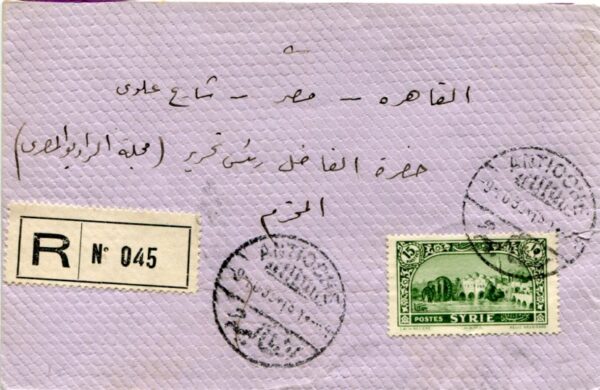 القاهره - مصر - شارع علوى
حضرة الفاضل رئيس تحرير (مجلة الراديو المصرى)
المحترم
R N° 045
ANTIOCHE
ANTIOCHE
15
POSTES SYRIE